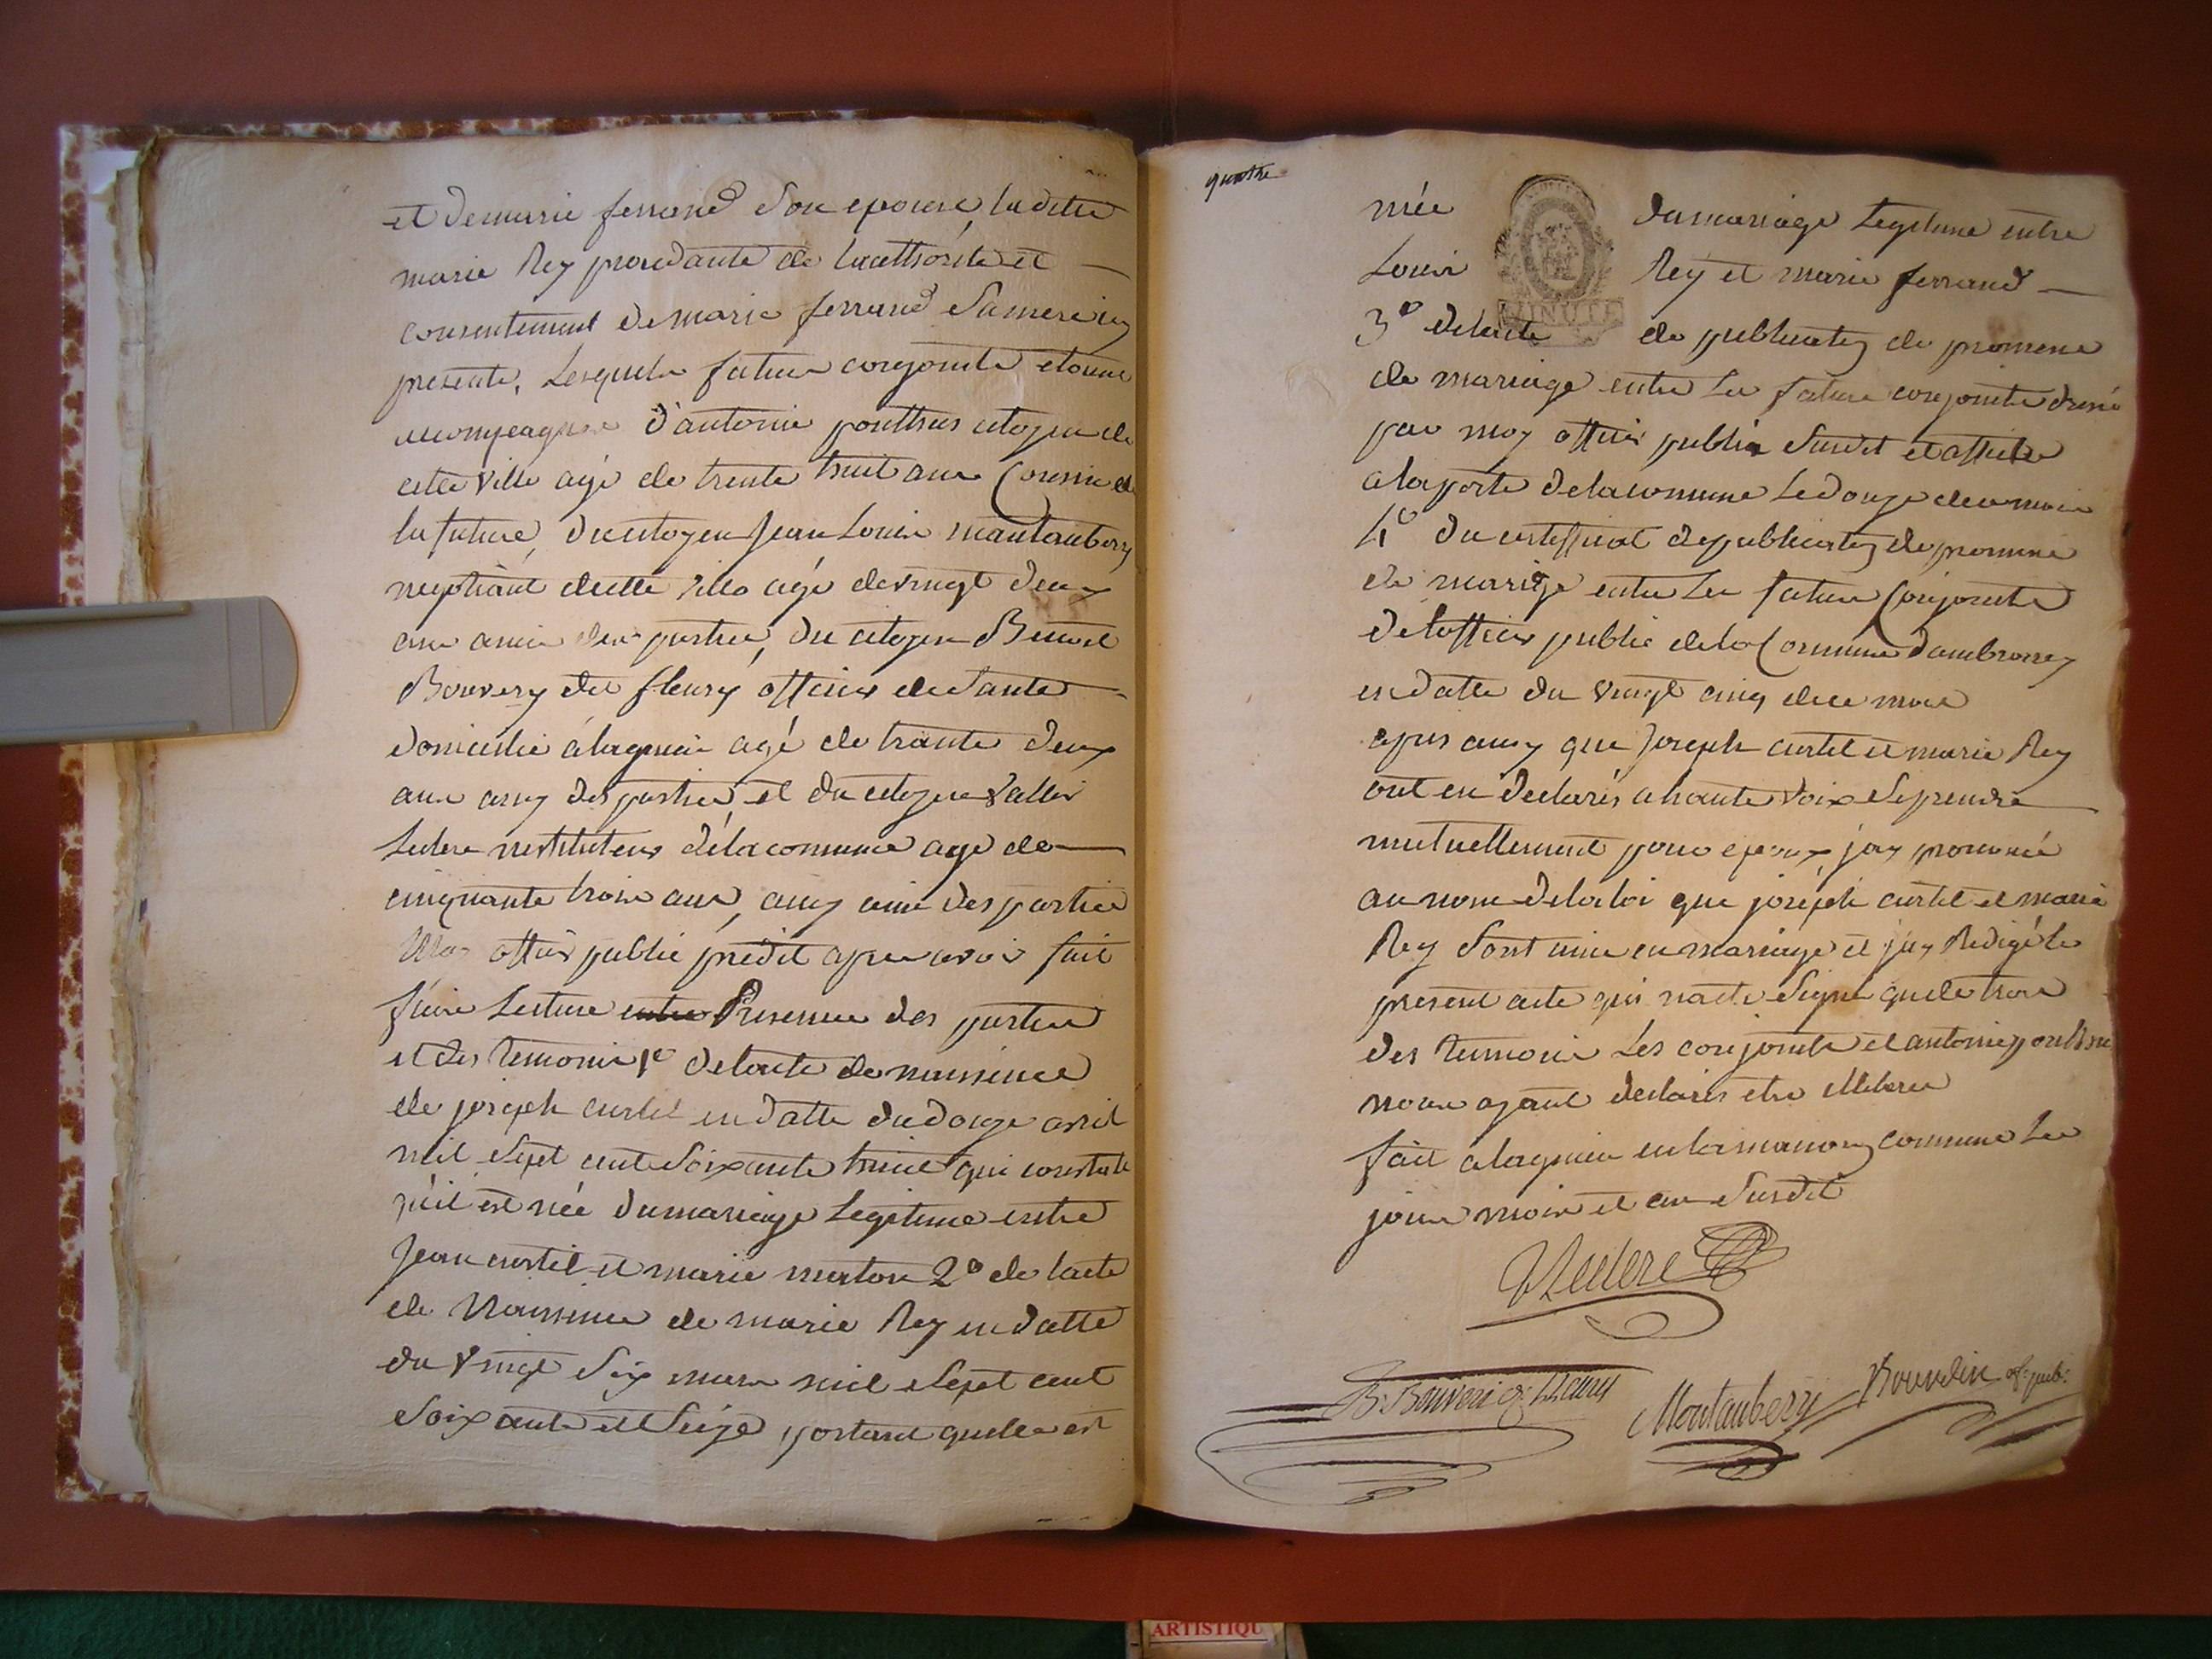 et demarie ferrand son epouse, ladette
marie Rey procedante de lauthorité et
consentement de marie ferrand samere icy
presente, Lesquels futurs conjoints etoient
accompagnés d'antoine pouthus citoyen de
cette ville agé de trente huit ans Cousin de
la future, du citoyen Jean Louis mantaubery
negotiant decette ville agé devingt deux
ans amis des parties, du citoyen Benoit
Bouvery du fleury officier de Santé
domicilié alagnieu agé de trante deux
ans amy des parties, et du citoyen vallier
Leclerc instituteur délacommune agé de
cinquante trois ans, aussy amis des parties
Moy officier public prédit apres avoir fait
faire Lecture entre Presence des parties
et des temoins 1º delacte de naissance
de joseph curtil en datte du douze avril
mil sept cent soixante huit qui constate
qu'il est née dumariage Legitime entre
Jean curtil et marie marton 2º de lacte
de Naissance de marie Rey en datte
du vingt six mars mil sept cent
soixante et seize, portant quelle est
quatre
née dumariage Legitime entre
Louis Rey et marie ferrand
3º delacte de publication de promesse
de mariage entre Les futurs conjoints dressé
par moy officier public susdit et affiché
a laporte delacommune Le douze de ce mois
4º du certifficat depublication de promesse
de mariage entre Les futurs Conjoints
de lofficier public dela Commune dambronay
en datte du vingt cinq de ce mois
apres aussy que Joseph curtil et marie Rey
ont eu déclarés ahaute voix se prendre
mutuellement pour epoux, jay prononcé
au nom de la loi que joséph curtil et marie
Rey sont unis en mariage et jay Redigé le
present acte qui nacte signé que de trois
des temoins Les conjoints et antoine pouthus
nous ayant déclarés etre illiterés
fait alagnieu en lamaison commune Les
jours mois et an susdit
VLeclerc
B. Bouveri d. fleury
Montaubery
Bourdin of. pub.
MINUTE
ARTISTIQU